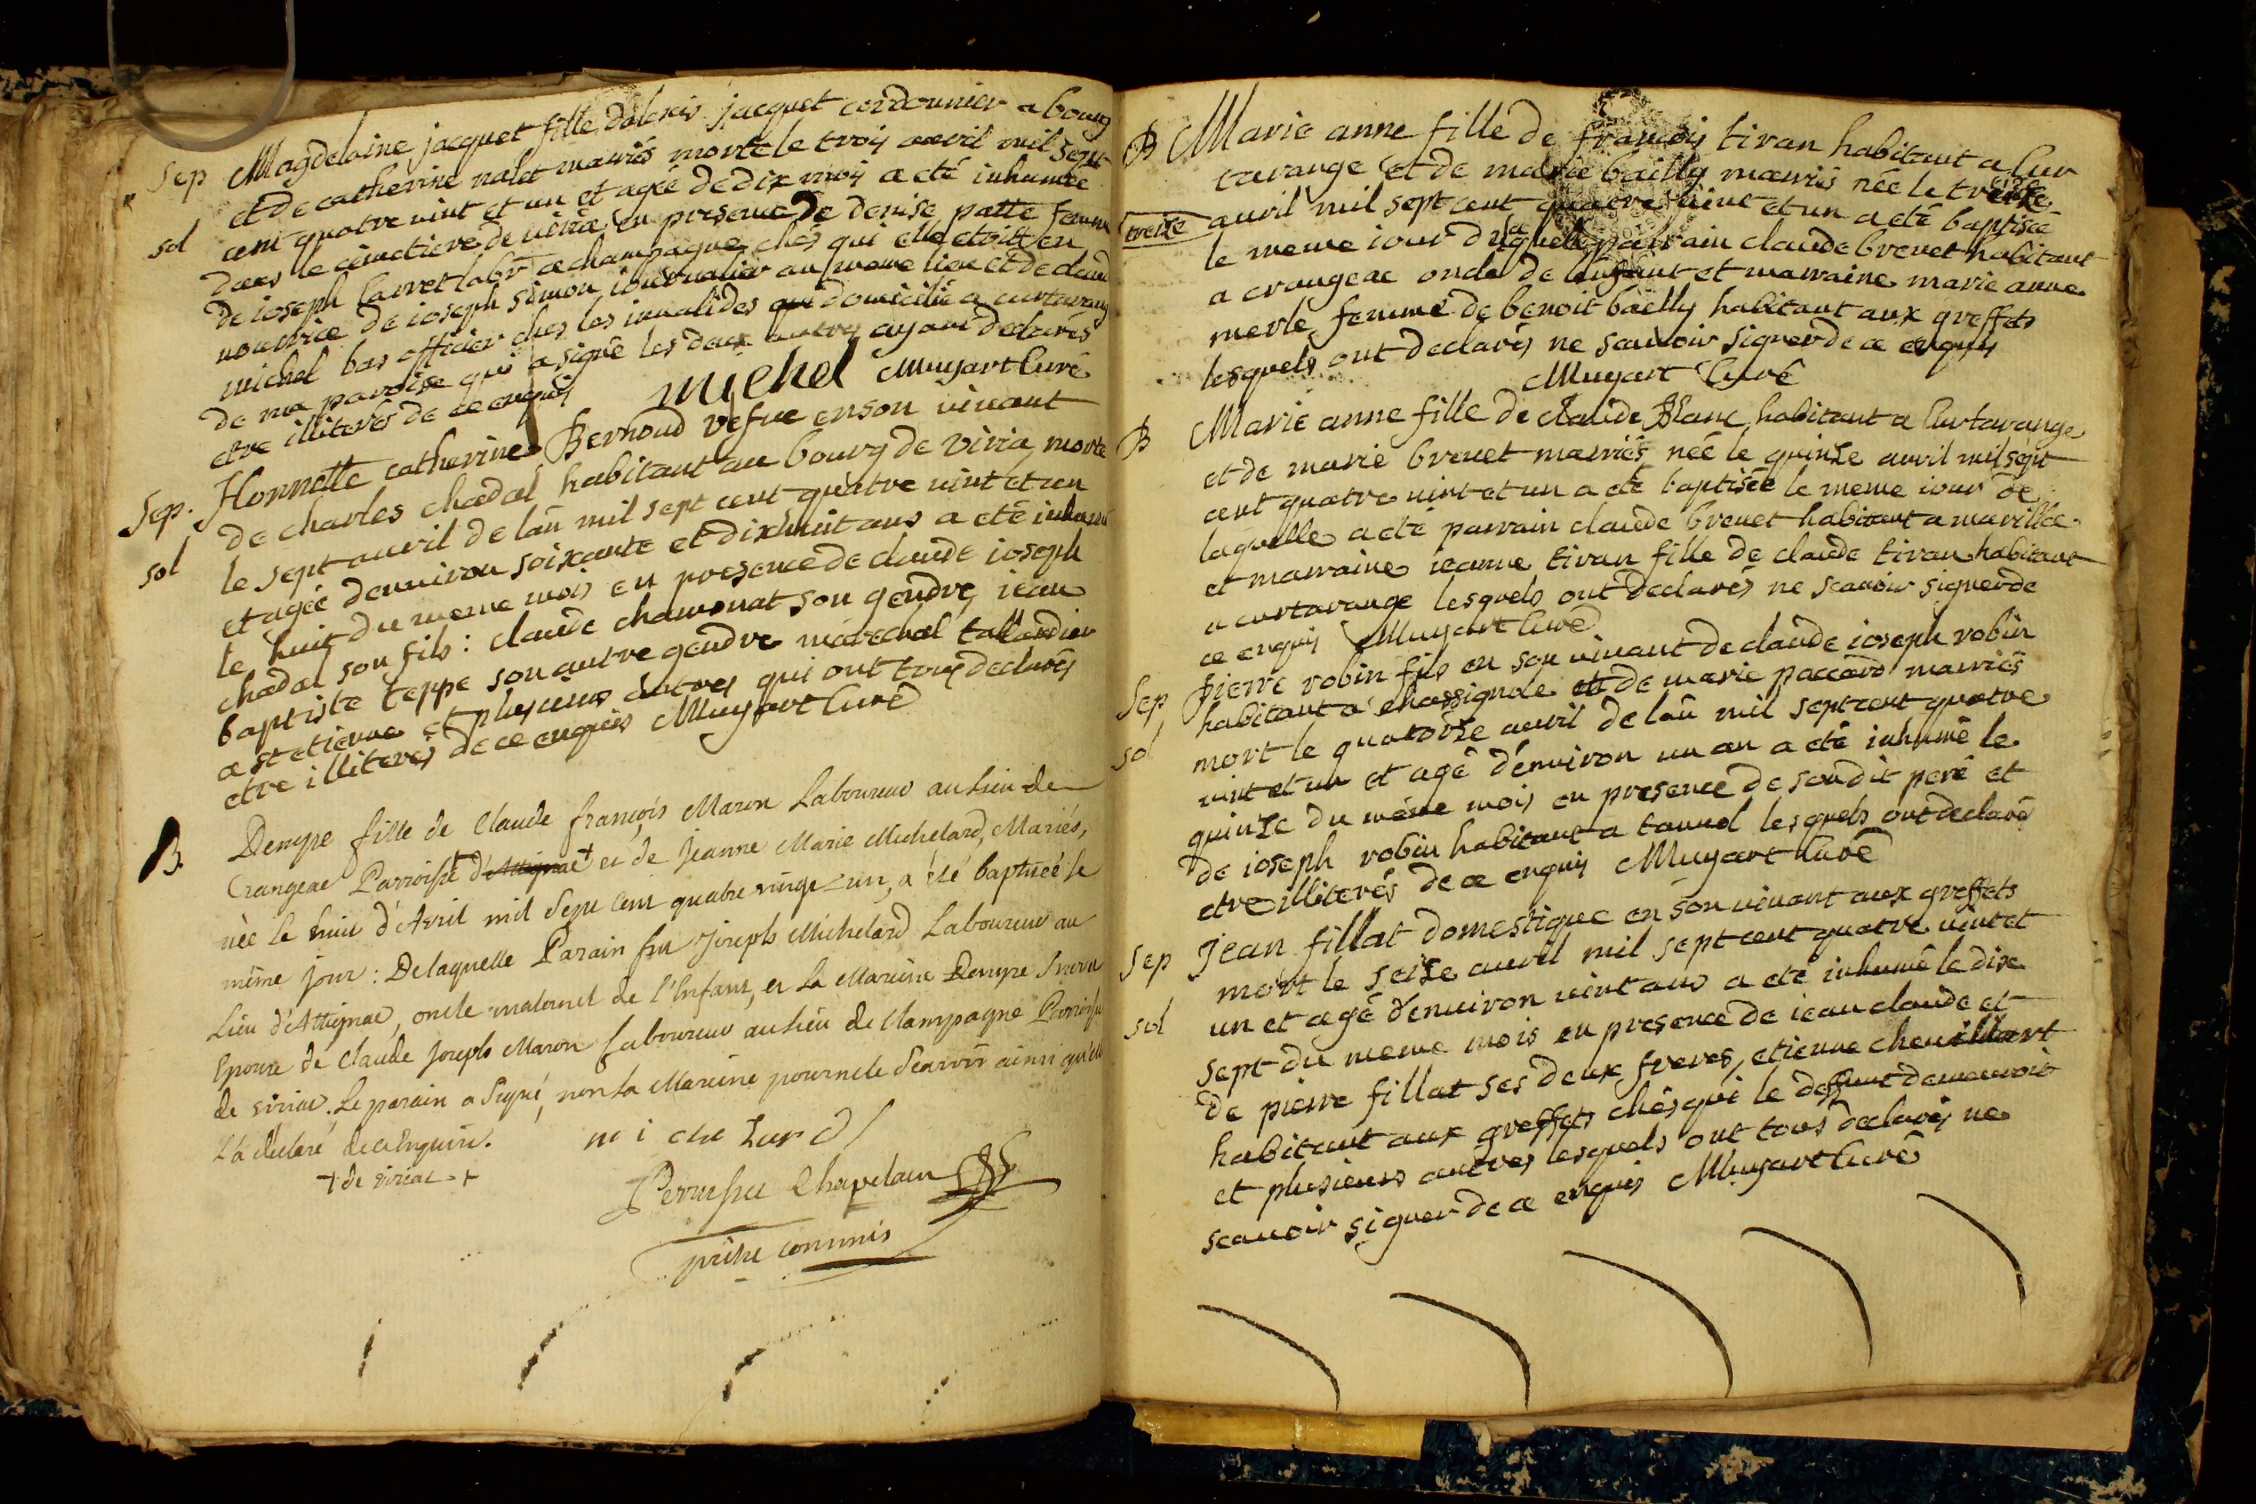 Sep Magdelaine jacquet fille dalexis jacquet cordonnier a bourg
et de catherine nalet mariés morte le trois avril mil sept
sol cent quatre vint et un et agée de dix mois a eté inhumée
dans le cimetiere de viria en presence de denise patte femme
de ioseph Carret labr a champagne chés qui elle etoit en
nourrice de ioseph simon iournalier au meme lieu et de claude
michel bas officier ches les invalides domicilié a curtarange
de ma paroisse qui a signé les deux autres ayant declarés
etre illiterés de ce enquis michel Muyart Curé
Sep. Honnette catherine Bernoud vefue en son vivant
de charles chadal habitant au bourg de viria morte
sol le sept auvril de lan mil sept cent quatre vint et un
et agée denviron soixante et dixhuit ans a eté inhumée
le huit du meme mois en presence de claude ioseph
chadal son fils : claude chamonat son gendre, iean
baptiste teppe son autre gendre marechal tallandier
a st etienne et plusieurs autres qui ont tous declarés
etre illiterés de ce enquis Muyart Curé
B. Denyse fille de Claude françois Maron Laboureur au Lieu de
Crangeac Parroisse d'Attignat + et de Jeanne Marie Michelard, Mariés,
née le huit d'Avril mil Sept Cent quatre vingt-un, a été baptisée le
même jour : De laquelle Parain fut Joseph Michelard Laboureur au
Lieu d'Attignac, oncle maternel de l'Enfant, et La Mareine Denyse
Epouse de Claude Joseph Maron Laboureur au Lieu de Champagne Parroisse
de viriac. Le parain a Signé, non La Mareine pour ne le Scavoir ainsi qu'elle
l'a declaré de ce Enquise. mi che Lard
+ de viriac +
Perruset Chapelain
prêtre commis
B Marie anne fille de françois tiran habitant a Cur
tarange et de marie bailly mariés née le treize
treize auvril mil sept cent quatre vint et un a eté baptisée
le meme iour de laquelle parrain claude brevet habitant
a crangeac oncle de lenfant et marraine marie anne
merle femme de benoit bailly habitant aux greffets
lesquels ont declarés ne scauvoir signer de ce enquis
Muyart Curé
B Marie anne fille de claude Blanc habitant a Curtarange
et de marie brevet mariés née le quinze auvril mil sept
cent quatre vint et un a eté baptisée le meme iour de
laquelle a eté parrain claude brevet habitant a marillia
et marraine ieanne tiran fille de claude tiran habitant
a curtarange lesquels ont declarés ne scavoir signer de
ce enquis Muyart Curé
Sep pierre robin fils en son vivant de claude ioseph robin
habitant a chassignole et de marie paccard mariés
sol mort le quatorze auvril de lan mil sept cent quatre
vint et un et agé d'environ un an a eté inhumé le
quinze du même mois en presence de son dit pere et
de ioseph robin habitant a tannol lesquels ont declaré
etre illiterés de ce enquis Muyart Curé
Sep Jean fillat domestique en son vivant aux greffets
mort le seize auvril mil sept cent quatre vint et
sol un et agé denviron vint ans a eté inhumé le dix
sept du meme mois en presence de iean claude et
de pierre fillat ses deux freres, etienne chevillart
habitant aux greffets chés qui le deffunt demeuroit
et plusieurs autres lesquels ont tous declarés ne
scavoir signer de ce enquis Muyart Curé